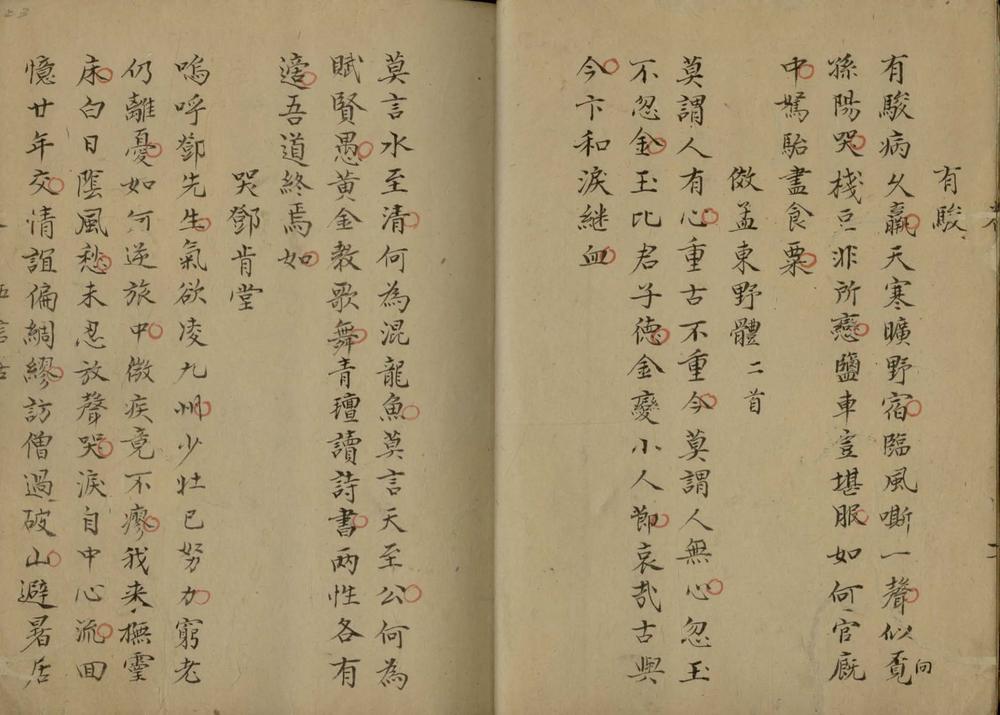 有駿
有駿病久羸天寒曠野宿臨風嘶一聲似覔向
孫陽哭棧豆非所戀鹽車豈堪服如何官厩
中駑駘盡食粟
倣孟東野體二首
莫謂人有心重古不重今莫謂人無心忽玉
不忽金玉比君子德金變小人節哀哉古與
今卞和淚継血
莫言水至清何為混龍魚莫言天至公何為
賦賢愚黄金教歌舞青氊讀詩書兩性各有
適吾道終焉如
哭鄧肯堂
嗚呼鄧先生氣欲凌九州少壯已努力窮老
仍離憂如何逆旅中微疾竟不瘳我来撫靈
床白日陰風愁未忍放聲哭淚自中心流回
憶廿年交情誼偏綢繆訪僧過破山避暑居
五言古